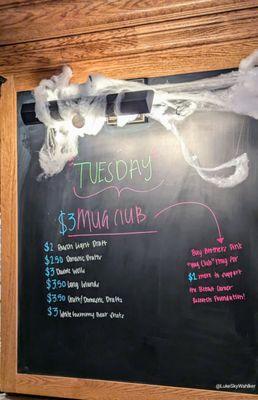 TUESDAY
$3 MUG CLUB
$2 Busch Light Draft
$2.50 Domestic Drafts
$3 Double Well
$3.50 Long Islands
$3.50 Craft/Domestic Drafts
$3 White Gummy Bear Shots
Buy Brothers Pink
"Mug Club" Mug for
$2 more to support
the Breast Cancer
Research Foundation!
@LukeSkyWahlker